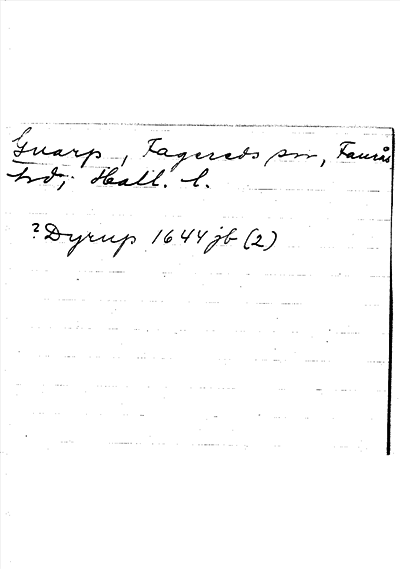 Gvarp, Fagereds sn, Faurås
hd; Hall. l.
? Dyrup 1644 jb (2)